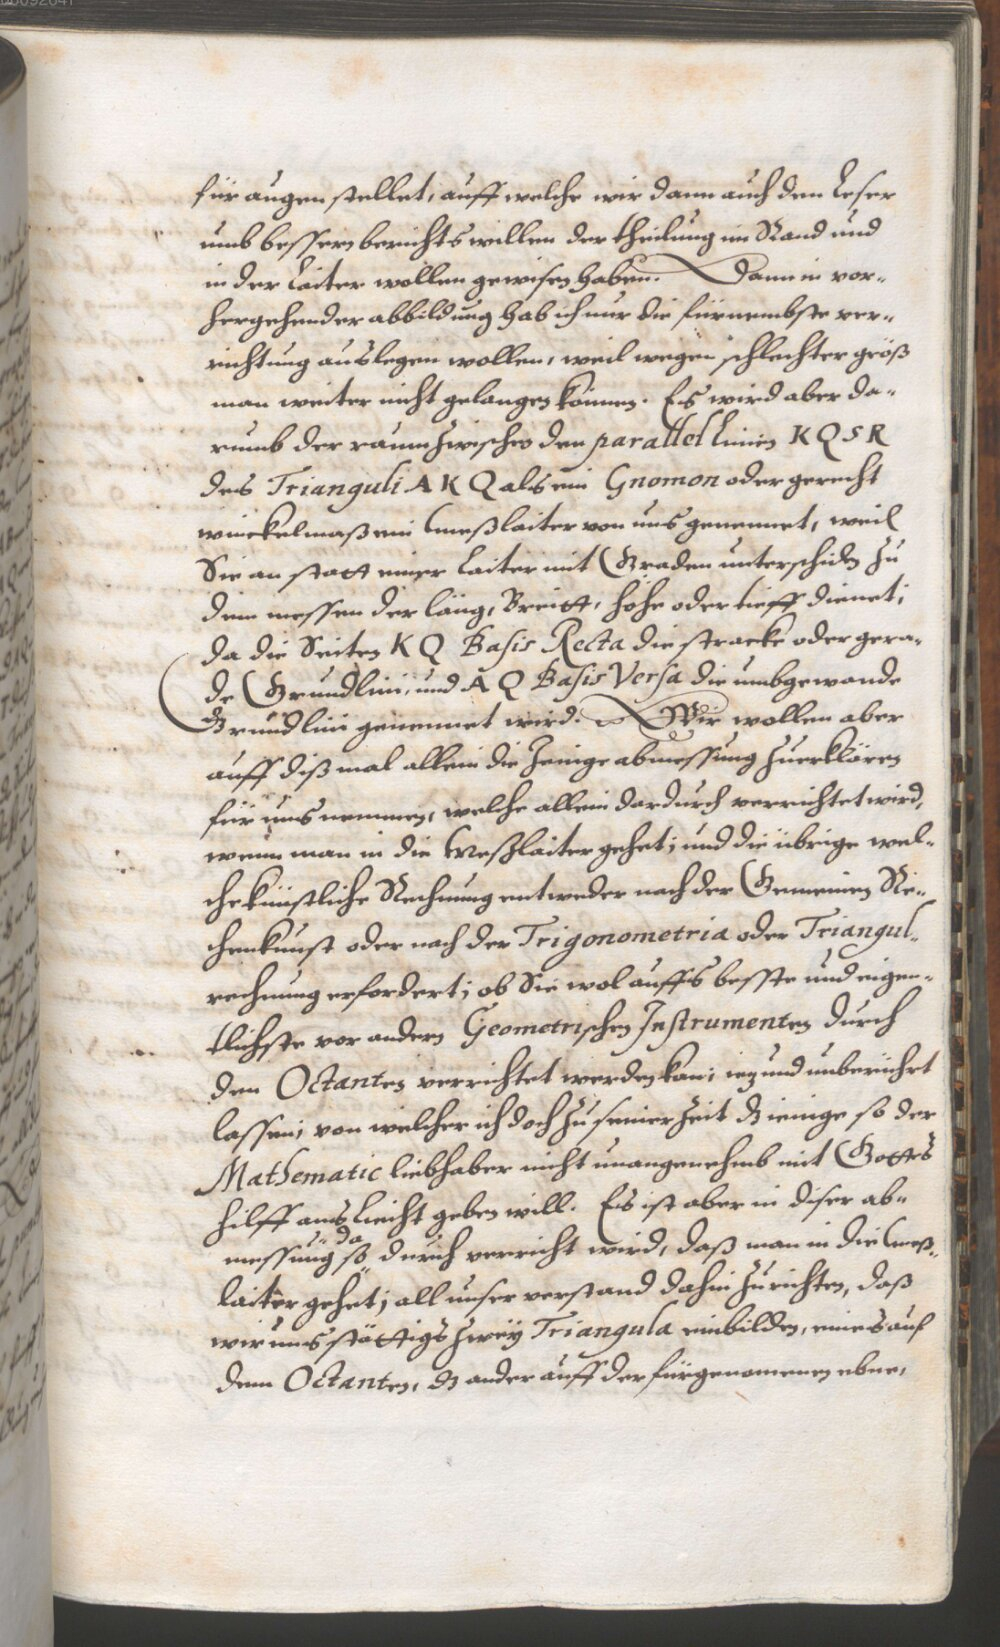 für augen stellet, auff welche wir dann auch den Leser
umb bessern berichts willen der theilung im Rand und
in der Laiter wollen gewisen haben. Dann in vor-
hergehender abbildung hab ich nur die fürnembste ver-
richtung auslegen wollen, weil wegen schlechter größ
man weiter nicht gelangen können. Es wird aber da-
rumb der raum zwischen den parallel linien K Q S R
des Trianguli A K Q als ein Gnomon oder gerecht
winckelmaß ein Meßlaiter von uns genennet, weil
Sie an statt einer Laiter mit Graden unterschiden zu
dem messen der läng, Breitt, höhe oder tieff dienet;
da die Seiten K Q Basis Recta die stracke oder gera-
de Grundlini, und A Q Basis Versa die umbgewande
Grundlini genennet wird. Wir wollen aber
auff diß mal allein die Jenige abmessung zuerklären
für uns nemmen, welche allein dardurch verrichtet wird,
wenn man in die Meßlaiter gehet; und die übrige wel-
che künstliche Rechnung entweder nach der Gemeinen Re-
chenkunst oder nach der Trigonometria oder Triangul-
rechnung erfordert; ob Sie wol auffs beste und eigen-
tlichste vor andern Geometrischen Instrumenten durch
den Octanten verrichtet werden kan; iezund unberührt
lassen; von welcher ich doch zu seiner Zeit dz ienige so der
Mathematic liebhaber nicht unangenehmb mit Gottes
hilff ans liecht geben will. Es ist aber in diser ab-
messung so da durch verricht wird, daß man in die Meß-
laiter gehet; all unser verstand dahin zurichten, daß
wir uns stättigs zwey Triangula einbilden, eines auf
dem Octanten, dz ander auff der fürgenomenen ebne,